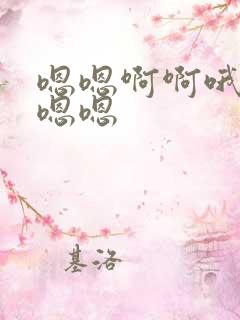 嗯嗯啊啊哦
嗯嗯
基洛